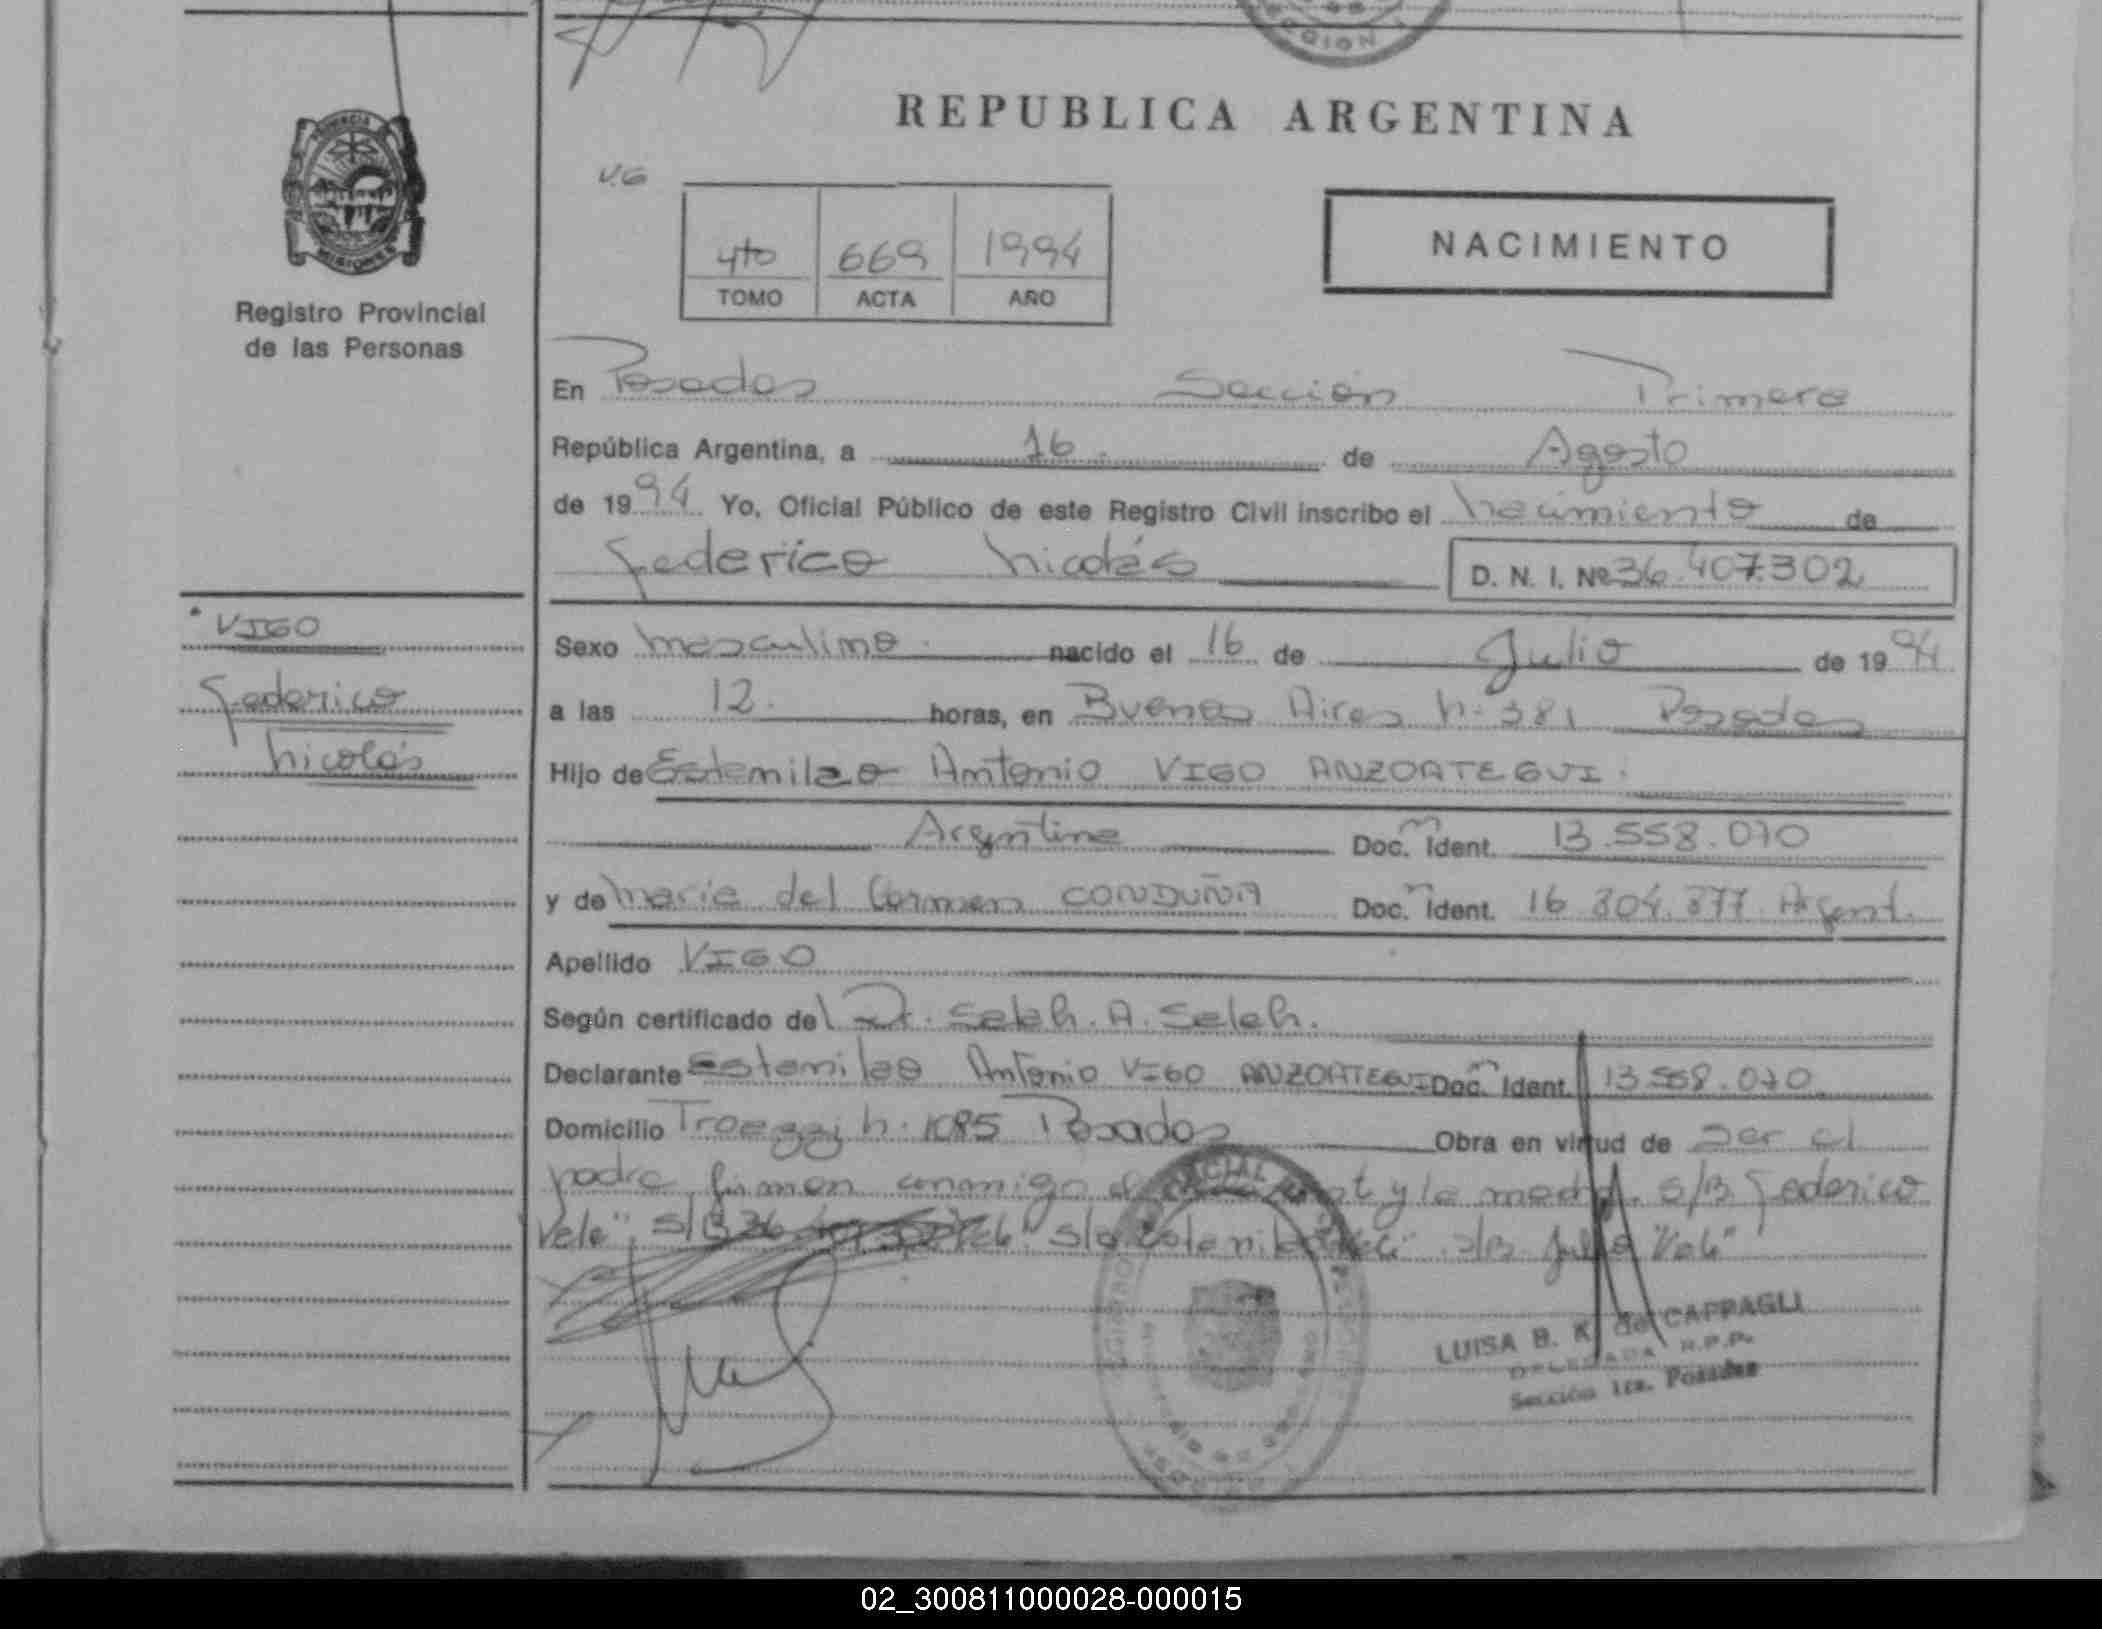 REGION
REPUBLICA ARGENTINA
PROVINCIA
MISIONES
Registro Provincial
de las Personas
V.G
4to 669 1994
TOMO ACTA AÑO
NACIMIENTO
En Posadas Sección Primera
República Argentina, a 16 de Agosto
de 1994 Yo, Oficial Público de este Registro Civil inscribo el nacimiento de
Federico Nicolás D. N. I. Nº 36.407.302
VIGO
Federico
Nicolás
Sexo masculino nacido el 16 de Julio de 1994
a las 12 horas, en Buenos Aires N. 381 Posadas
Hijo de Estanislao Antonio VIGO ANZOATEGUI.
Argentina Doc. Ident. 13.558.070
y de María del Carmen CONDUÑA Doc. Ident. 16.804.877 Argent.
Apellido VIGO
Según certificado del Dr. Saleh. A. Saleh.
Declarante Estanislao Antonio VIGO ANZOATEGUI Doc. Ident. 13.558.070
Domicilio Troazzi N. 1085 Posadas Obra en virtud de ser el
padre firman conmigo el y la madre. S/B Federico
Vale" S/B 36 S/B Julio "Vale"
LUISA B. K. de CAPPAGLI
DELEGADA R.P.P.
Sección 1ra. Posadas
02_300811000028-000015